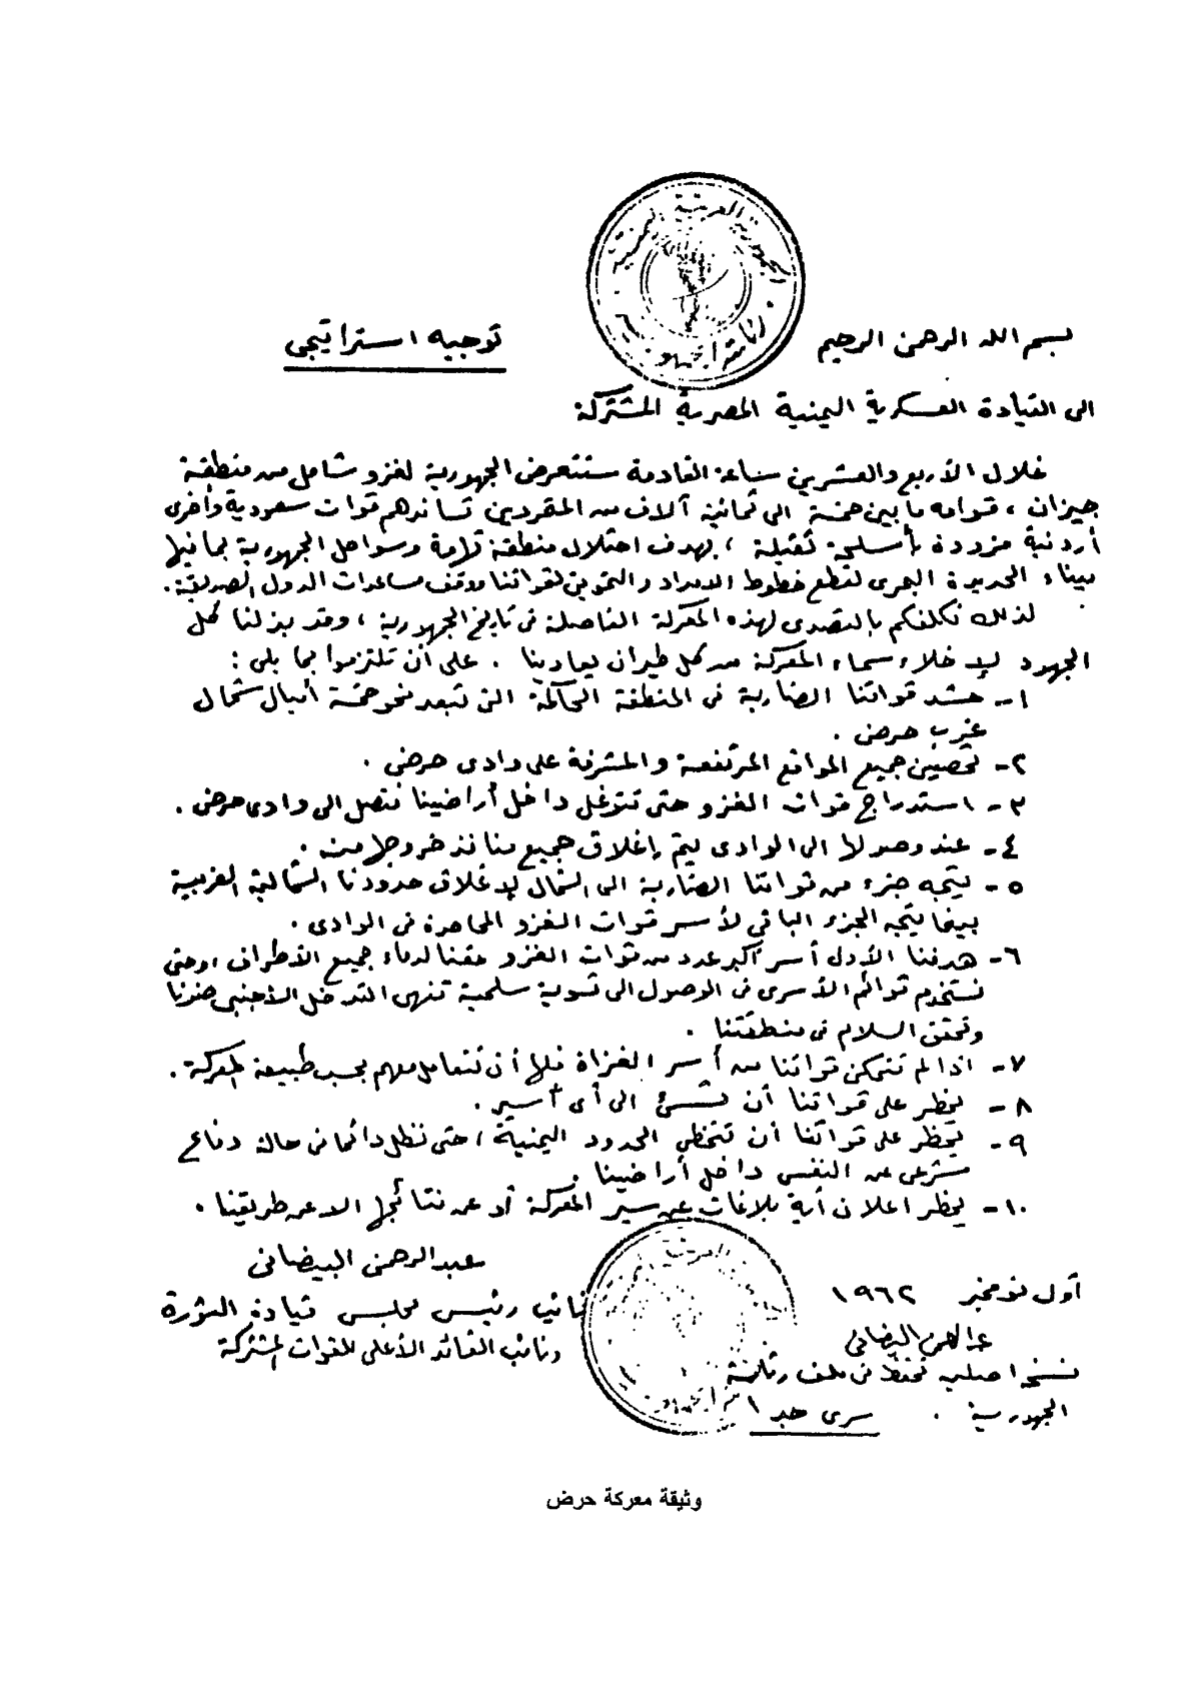 الجمهورية العربية اليمنية
رئاسة الجمهورية
بسم الله الرحمن الرحيم
توجيه استراتيجى
الى القيادة العسكرية اليمنية المصرية المشتركة
خلال الأربع والعشرين ساعة القادمة ستتعرض الجمهورية لغزو شامل من منطقة
جيزان ، قوامه ما بين خمسة الى ثمانية آلاف من المتمردين تساندهم قوات سعودية وأخرى
أردنية مزودة بأسلحة ثقيلة ، بهدف احتلال منطقة تهامة وسواحل الجمهورية بما فيها
ميناء الحديدة البحرى لقطع خطوط الامداد والتموين لقواتنا ووقف مساعدات الدول الصديقة .
لذلك نكلفكم بالتصدى لهذه المعركة الفاصلة فى تاريخ الجمهورية ، وقد بذلنا كل
الجهود لإخلاء سماء المعركة من كل طيران يعادينا . على أن تلتزموا بما يلى :
١ - حشد قواتنا الضاربة فى المنطقة الحاكمة التى تبعد نحو خمسة أميال شمال
غرب حرض .
٢ - تحصين جميع المواقع المرتفعة والمشرفة على وادى حرض .
٣ - استدراج قوات الغزو حتى تتوغل داخل أراضينا فتصل الى وادى حرض .
٤ - عند وصولها الى الوادى يتم إغلاق جميع منافذ خروجها منه .
٥ - يتجه جزء من قواتنا الضاربة الى الشمال لإغلاق حدودنا الشمالية الغربية
بينما يتجه الجزء الباقى لأسر قوات الغزو المحاصرة فى الوادى .
٦ - هدفنا الأول أسر أكبر عدد من قوات الغزو حقنا لدماء جميع الأطراف ، وحتى
نستخدم قوائم الأسرى فى الوصول الى تسوية سلمية تنهى التدخل الأجنبى ضدنا
وتحقق السلام فى منطقتنا .
٧ - اذا لم تتمكن قواتنا من أسر الغزاة فلها أن تتعامل معهم بحسب طبيعة المعركة .
٨ - يحظر على قواتنا أن تسئ الى أى أسير .
٩ - يحظر على قواتنا أن تتخطى الحدود اليمنية ، حتى نظل دائما فى حالة دفاع
شرعى عن النفس داخل أراضينا .
١٠ - يحظر اعلان أية بلاغات عن سير المعركة أو عن نتائجها الا عن طريقنا .
عبد الرحمن البيضانى
نائب رئيس مجلس قيادة الثورة
ونائب القائد الأعلى للقوات المشتركة
أول نوفمبر ١٩٦٢
عبد الرحمن البيضانى
نسخة اصلية تحفظ فى ملف رئاسة
الجمهورية .
سرى جدا
وثيقة معركة حرض